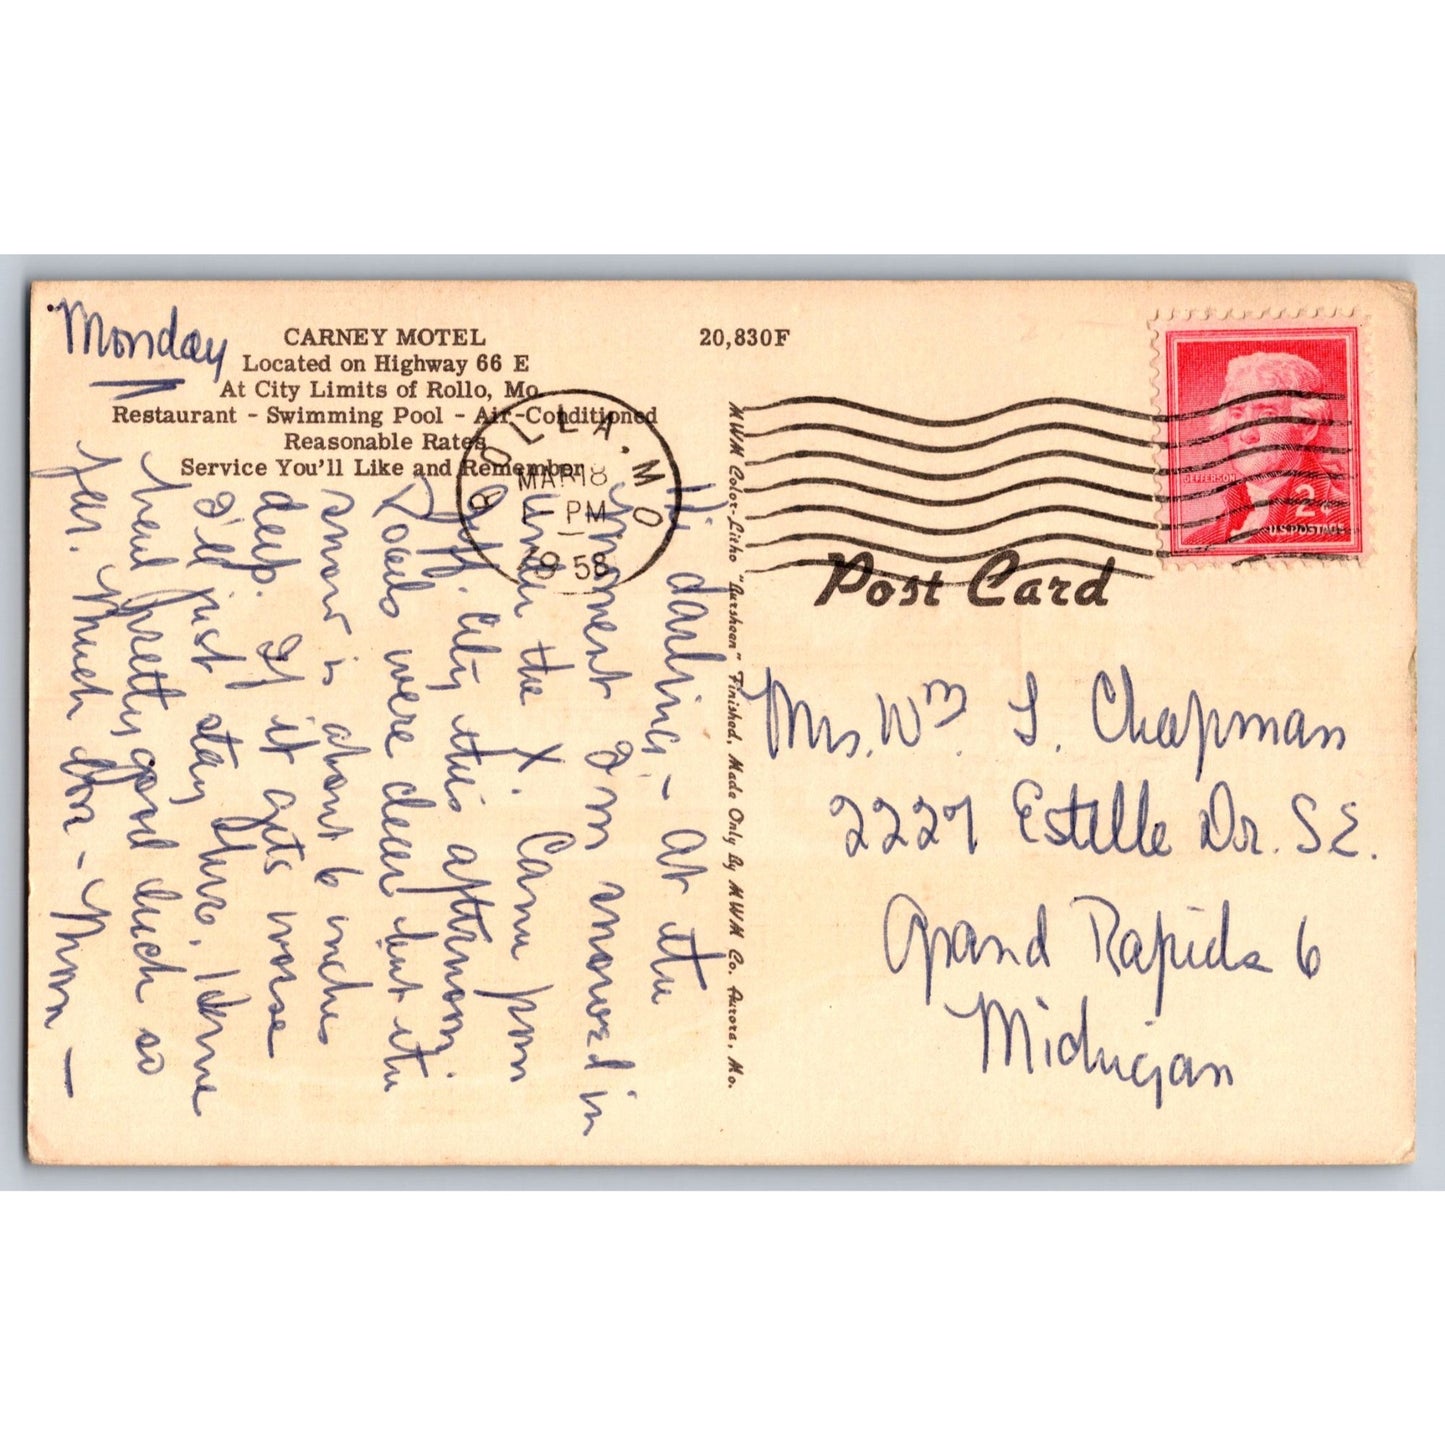 Monday
CARNEY MOTEL
Located on Highway 66 E
At City Limits of Rollo, Mo.
Restaurant - Swimming Pool - Air-Conditioned
Reasonable Rates
Service You'll Like and Remember
20,830F
ROLLA, MO
MAR 18
1 - PM
1958
JEFFERSON
2¢
U.S. POSTAGE
Post Card
MWM Color-Litho "Aursheen" Finished, Made Only By MWM Co. Aurora, Mo.
Hi darling - At the
moment I'm snowed in
under the X. Came from
Jeff. City this afternoon.
Roads were clear but the
snow is about 6 inches
deep. If it gets worse
I'll just stay here.
had pretty good luck so
far. Much love - Mom -
Mrs. Wm I. Chapman
2227 Estelle Dr. SE.
Grand Rapids 6
Michigan